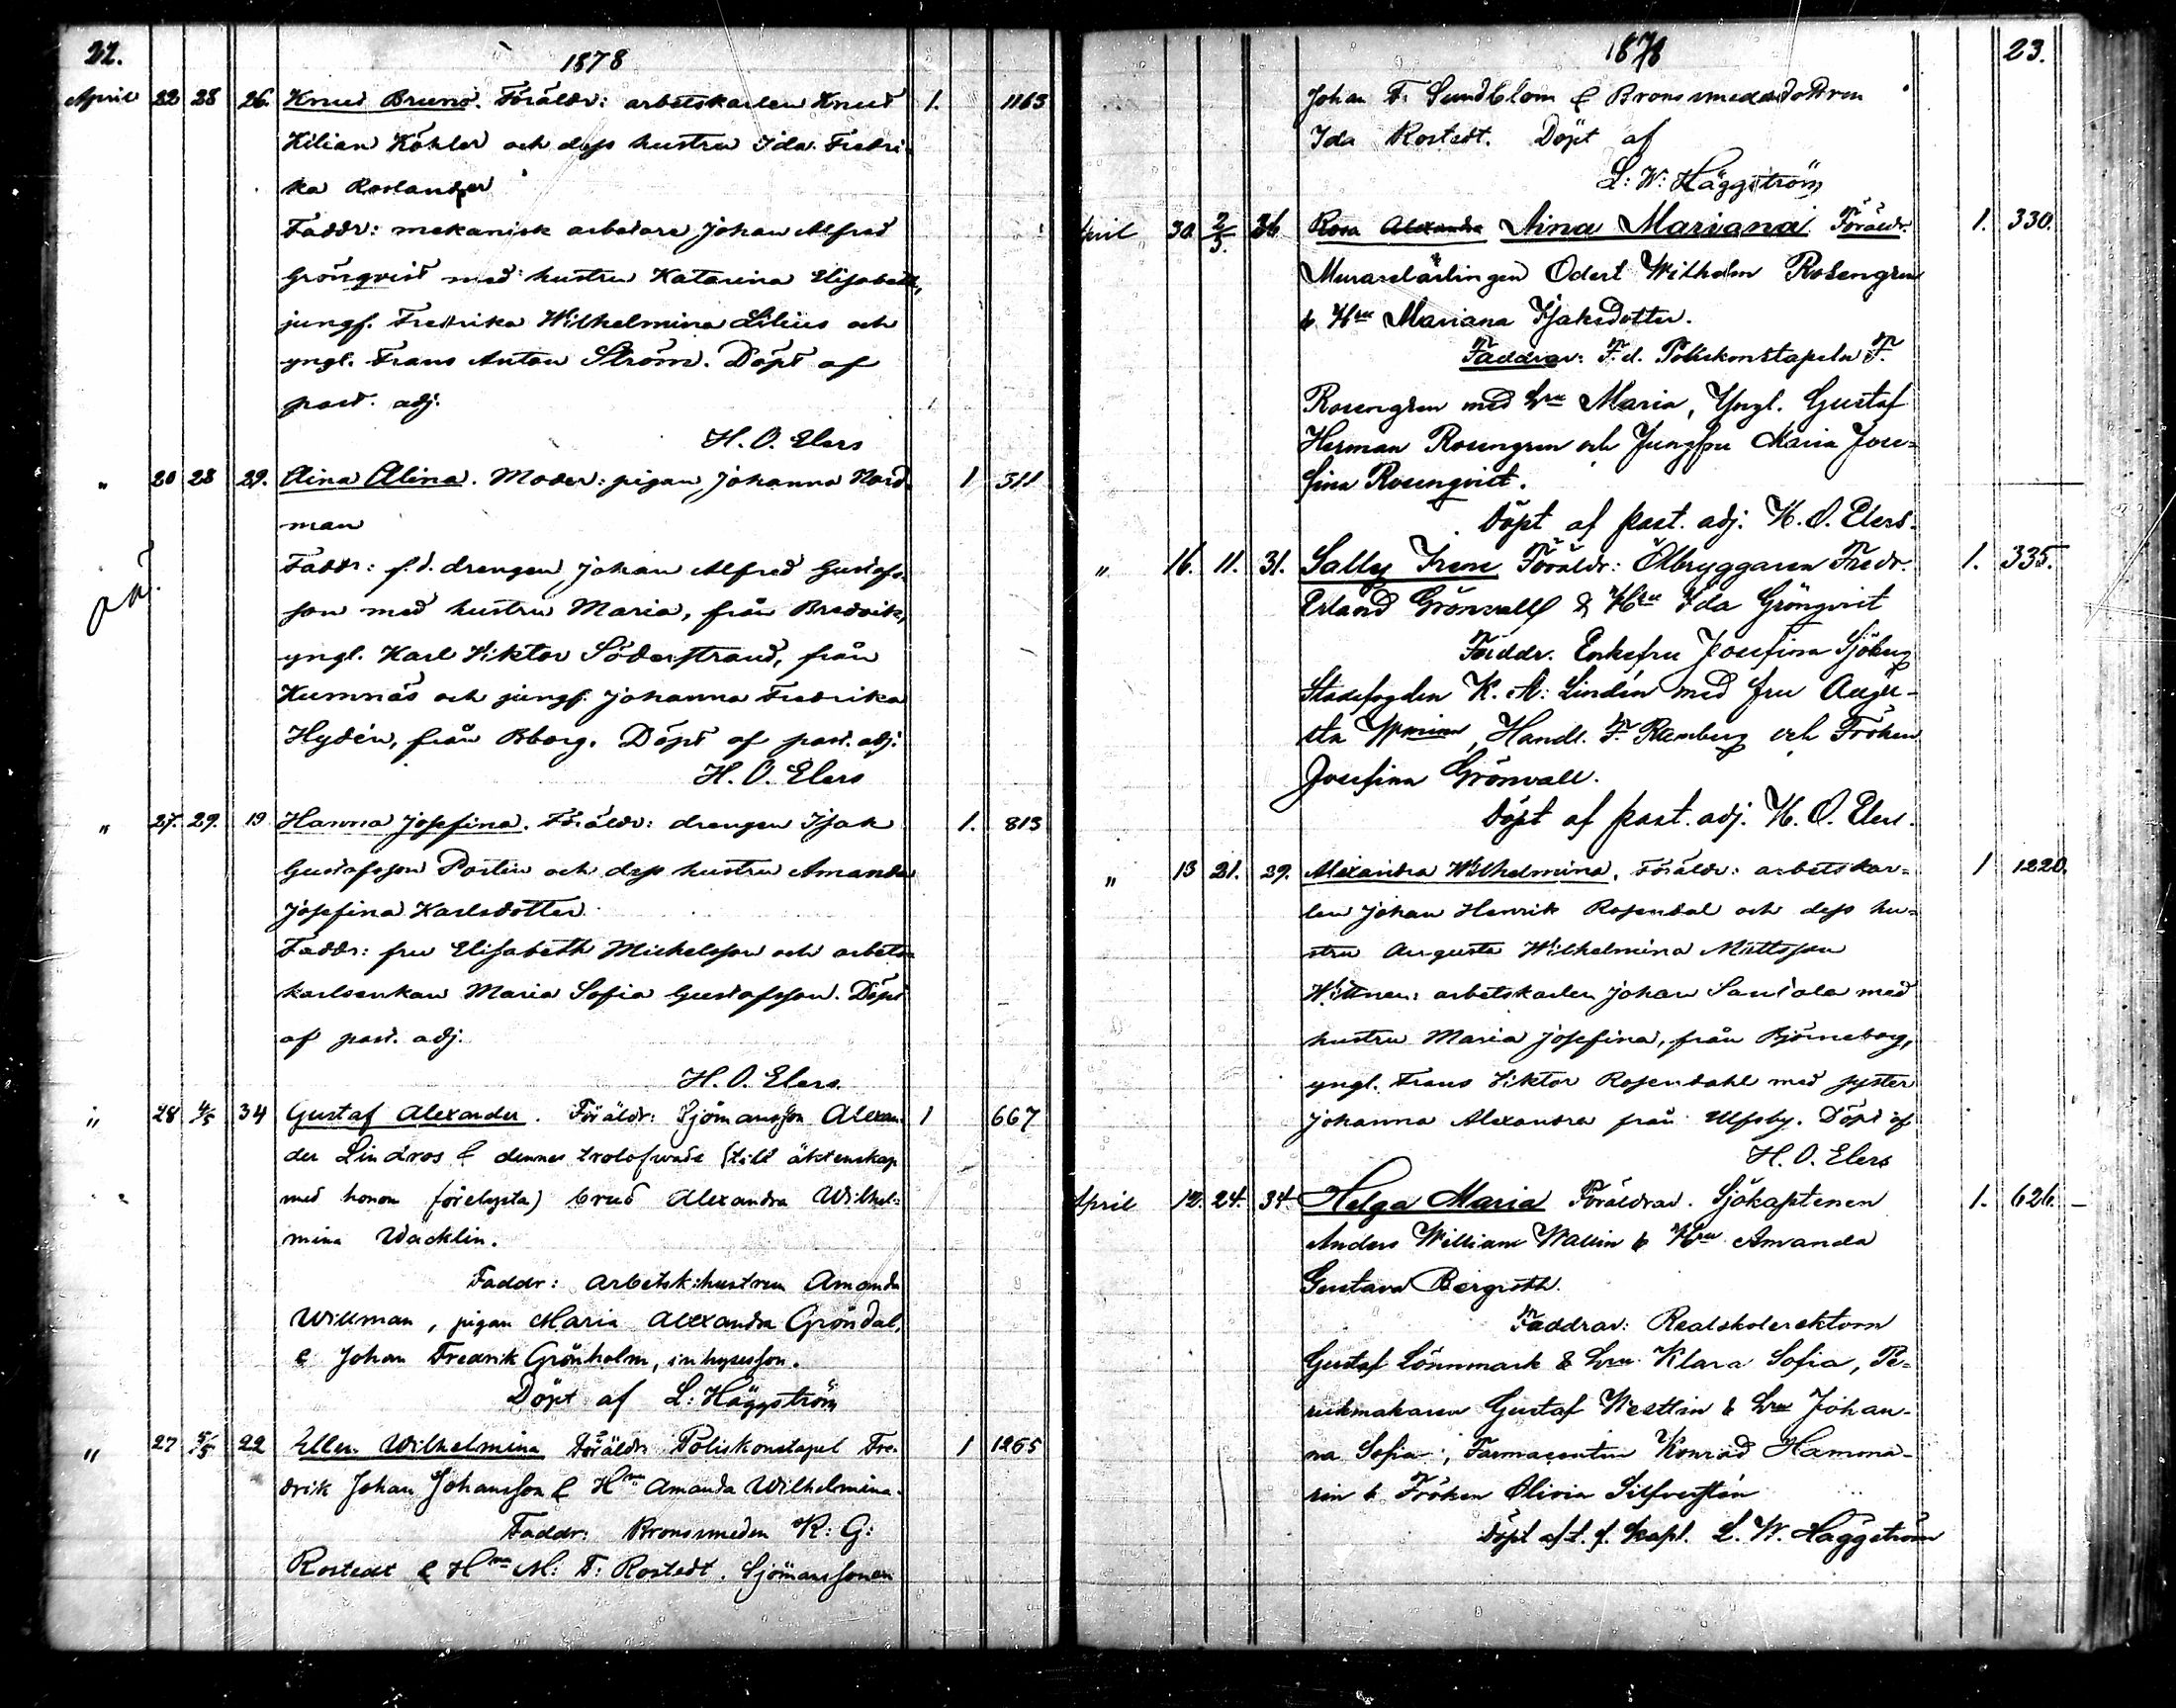 22.
1878
April 22 28 26. Knud Bruno. Föräldr: arbetskarlen Knud 1. 1163
Kilian Köhler och dess hustru Ida Fredri-
ka Roslander
Faddr: mekanisk arbetare Johan Alfred
Grönqvist med hustru Katarina Elisabeth,
jungf. Fredrika Wilhelmina Lilius och
yngl. Frans Anton Ström. Döpt af
past. adj.
H. O. Elers
" 20 28 29. Aina Alina. Moder: pigan Johanna Nord- 1 511
man
Faddr: f.d. drengen Johan Alfred Gustafs-
son med hustru Maria, från Bredvik,
yngl. Karl Viktor Söderstrand, från
Kumnäs och jungf. Johanna Fredrika
Hydén, från Bborg. Döpt af past. adj.
H. O. Elers
" 27. 29. 19 Hanna Josefina. Föräldr: drengen Isak 1. 813
Gustafsson Portin och dess hustru Amanda
Josefina Karlsdotter
Faddr: fru Elisabeth Michelsson och arbets-
karlsenkan Maria Sofia Gustafsson. Döpt
af past. adj.
H. O. Elers.
" 28 4/5 34 Gustaf Alexander. Föräldr: Sjömansson Alexan- 1 667
der Lindros & dennes trolofvade (till äktenskap
med honom förelysta) brud Alexandra Wilhel-
mina Wacklin.
Faddr: arbetsk:hustrun Amanda
Willman, pigan Maria Alexandra Gröndal,
& Johan Fredrik Grönholm, inhysesson.
Döpt af L: Häggström
" 27 5/5 22 Ellen Wilhelmina Föräldr: Poliskonstapel Fre- 1 1265
drik Johan Johansson & Hru Amanda Wilhelmina.
Faddr: Bronssmeden K: G:
Rostedt & Hru M: F: Rostedt. Sjömanssonen
1878
23.
Johan F. Sundblom & Bronssmedsdottren
Ida Rostedt. Döpt af
L: W: Häggström
April 30. 2/5. 36 Rosa Alexandra Aina Mariana Föräldr. 1. 330.
Muraselärlingen Odert Wilhelm Rosengren
& Hru Mariana Isaksdotter.
Faddrar: F.d. Poliskonstapeln F.
Rosengren med hru Maria, Yngl. Gustaf
Herman Rosengren och Jungfru Maria Jose-
fina Rosenqvist.
Döpt af past. adj. H. O. Elers.
" 16. 11. 31. Sally Irene Föräldr: Ölbryggaren Fredr. 1. 335.
Erland Grönvall & Hru Ida Grönqvist
Faddr. Enkefru Josefina Sjöberg
Stadsfogden K. A. Lindén med fru Augu-
sta, Handl. F. Ramberg och Fröken
Josefina Grönvall.
Döpt af past. adj. H. O. Elers.
" 13 21. 29. Alexandra Wilhelmina. Föräldr: arbetskar- 1 1220.
len Johan Henrik Rosendal och dess hu-
stru Augusta Wilhelmina Mattsson
Wittnen: arbetskarlen Johan Santala med
hustru Maria Josefina, från Björneborg,
yngl. Frans Viktor Rosendahl med syster
Johanna Alexandra från Ulfsby. Döpt af
H. O. Elers
April 12. 24. 34. Helga Maria Föräldrar. Sjökaptenen 1. 626.
Anders William Wallin & Hru Amanda
Gustava Bergroth.
Faddrar: Realskolerektorn
Gustaf Lönnmark & hru Klara Sofia, Pe-
rukmakaren Gustaf Westlin & hru Johan-
na Sofia, Farmaceuten Konrad Hamma-
rén & Fröken Olivia Silfverstén
Döpt af t.f. kapl. L. W. Häggström